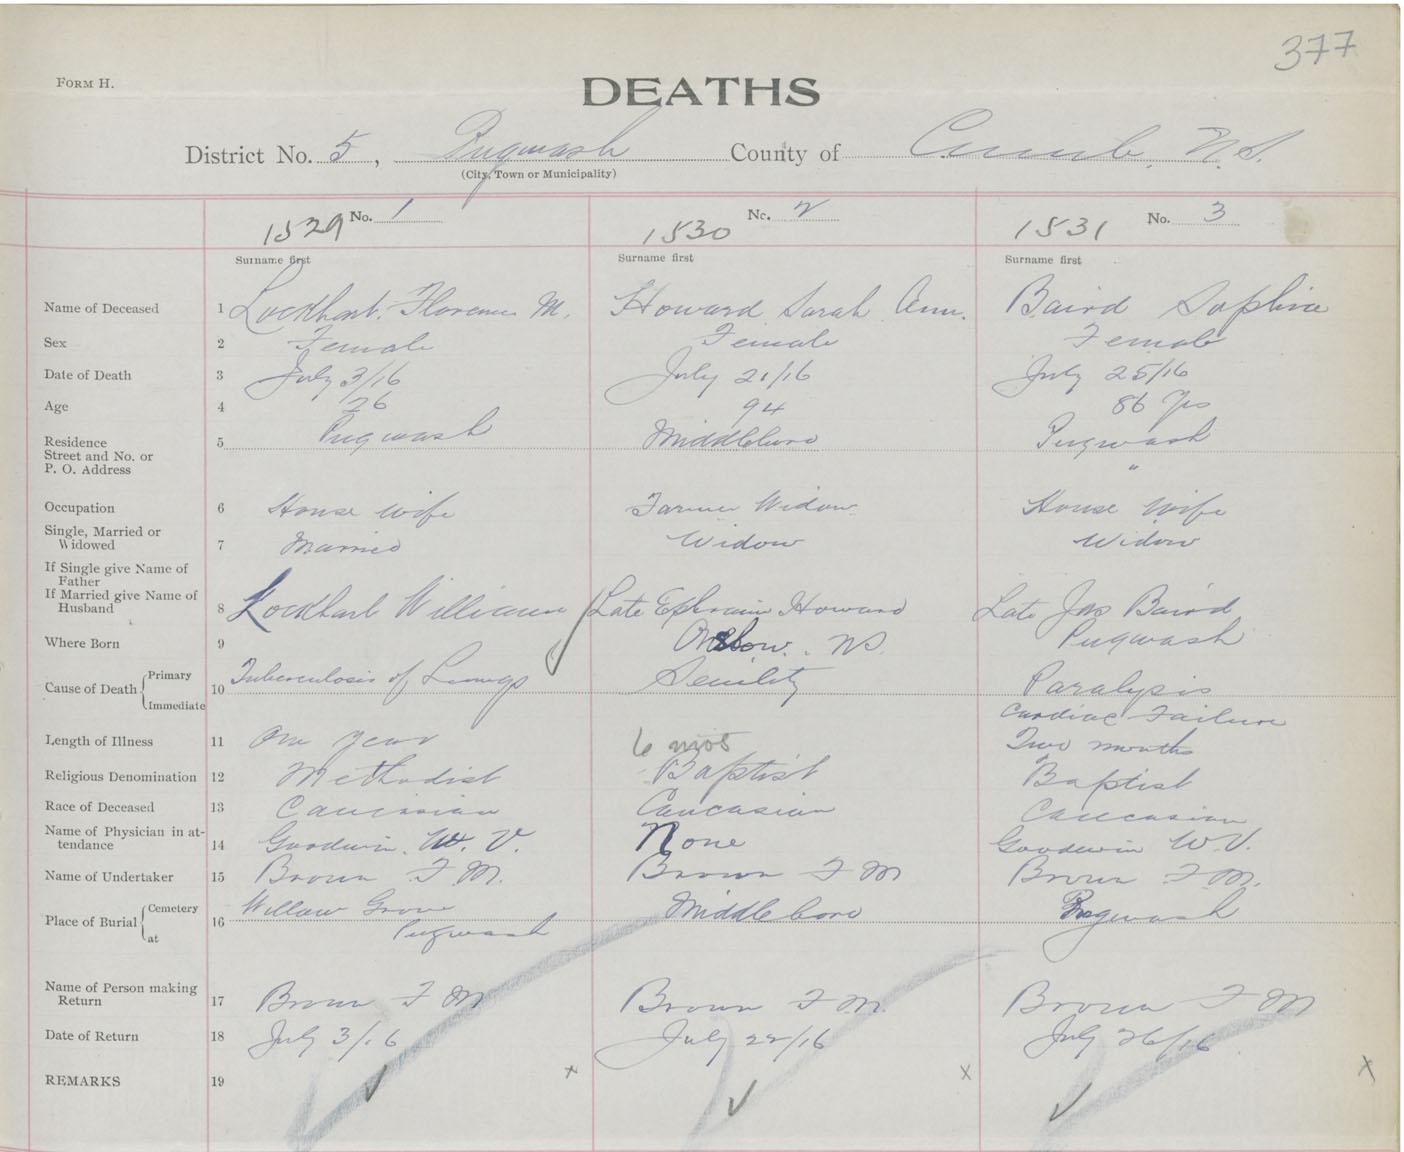 377
FORM H.
DEATHS
District No. 5, Pugwash County of Cumb. N.S.
(City, Town or Municipality)
1529 No. 1 1530 No. 2 1531 No. 3
Surname first Surname first Surname first
Name of Deceased 1 Lockhart. Florence M. Howard Sarah Ann. Baird Saphira
Sex 2 Female Female Female
Date of Death 3 July 3/16 July 21/16 July 25/16
Age 4 26 94 86 yrs
Residence 5 Pugwash Middleboro Pugwash
Street and No. or
P. O. Address "
Occupation 6 House wife Farmer Widow House wife
Single, Married or
Widowed 7 Married Widow Widow
If Single give Name of
Father
If Married give Name of
Husband 8 Lockhart William Late Ephraim Howard Late Jas Baird
Where Born 9 Onslow. N.S. Pugwash
Cause of Death Primary 10 Tuberculosis of Lungs Senility Paralysis
Immediate Cardiac Failure
Length of Illness 11 One year 6 mos Two months
Religious Denomination 12 Methodist Baptist Baptist
Race of Deceased 13 Caucasian Caucasian Caucasian
Name of Physician in at-
tendance 14 Goodwin. W. V. None Goodwin W. V.
Name of Undertaker 15 Brown F. M. Brown F M Brown F. M.
Place of Burial Cemetery 16 Willow Grove Middleboro Pugwash
at Pugwash
Name of Person making
Return 17 Brown F M Brown F. M. Brown F M
Date of Return 18 July 3/16 July 22/16 July 26/16
REMARKS 19 x x x